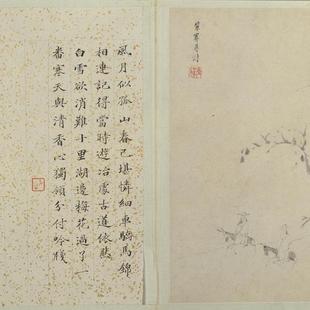 風月似孤山春已堪憐細車驄馬錦
相連記得當時遊冶處古道依然
白雪欲消難十里湖邊梅花過了一
番寒天與清香心獨領分付吟牋